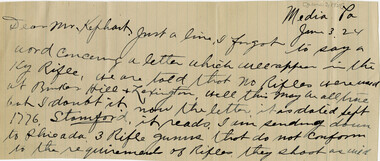 Media Pa
June 3. 24
Dear Mr. Kephart Just a line, I forgot to say a
word concering a letter which will appear in the
Ky Rifle, we are told that no Rifles were used
at Bunker Hill & Lexington well this may be all true
but I doubt it now the letter is dated Sept
1776, Stamford, it reads, I am sending down
to 3 Rifle guns that do not conform
to the requirement of Rifles they shoot